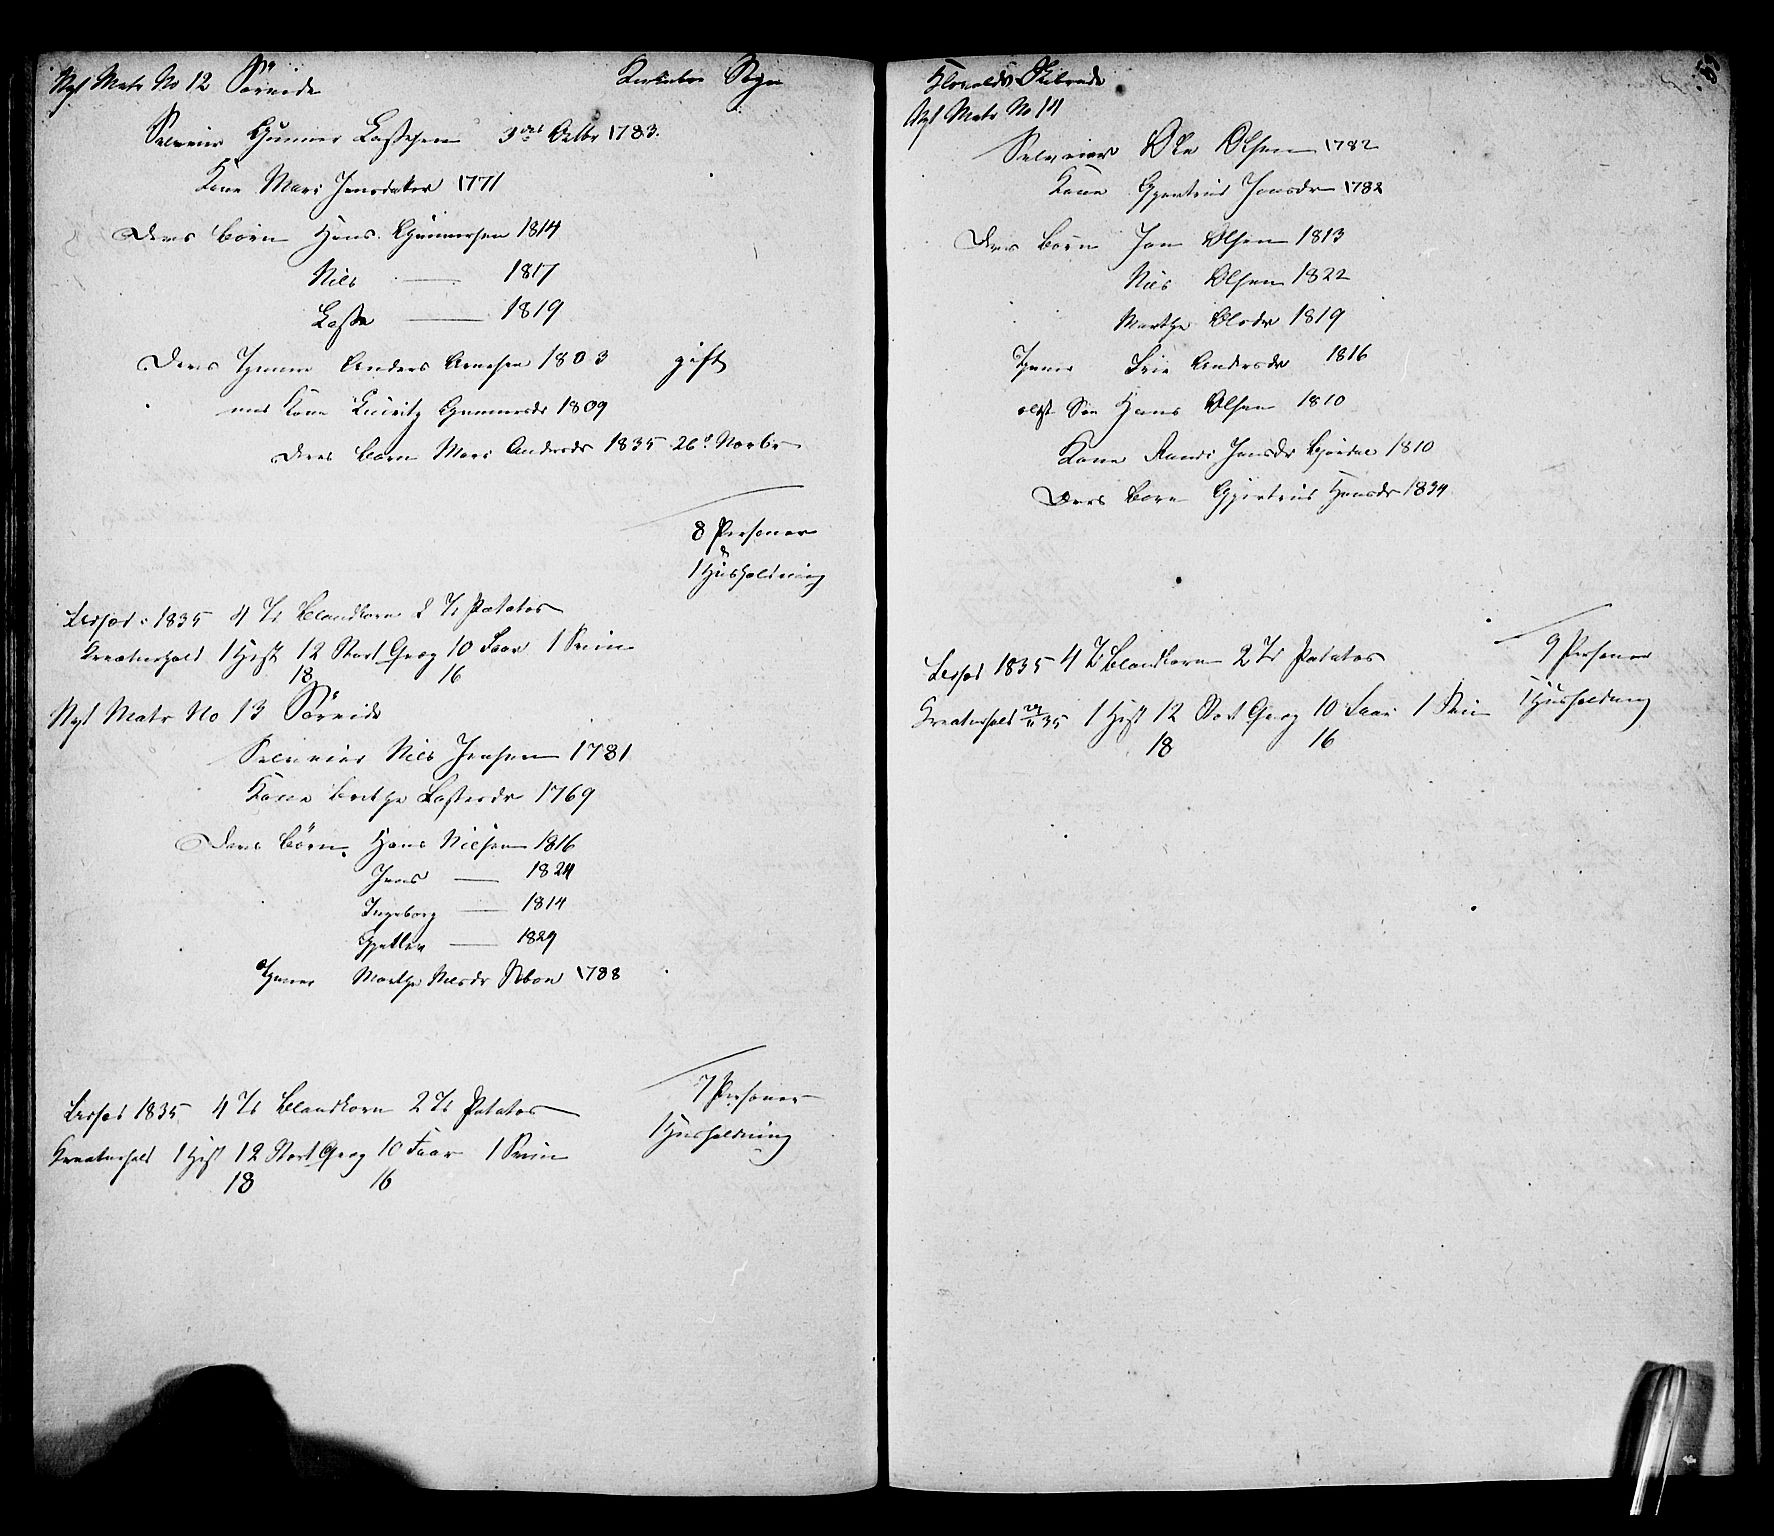 Nyt Matr No 12 Sörvide
Sogn
Selveier Gunner Lassesen 3die Octbr 1783.
Kone Mari Jensdatter 1771
Deres Börn Hans Gunnersen 1814
Nils —— 1817
Lasse —— 1819
Deres Tjenere Anders Arnesen 1803 gift
med Kone Gunnersdr 1809
Deres Barn Mari Andersdr 1835 26d Novbr
8 Personer
&
1 Huusholdning
Udsæd: 1835 4 Tr Blandkorn 2 Tr Potatos
Kreaturhold 1 Hest 12 Stort Qvæg 10 Faar 1 Sviin
18 16
Nyt Matr No 13 Sörvide
Selveier Nils Jensen 1781
Kone Brithe Lassesdr 1769
Deres Börn Hans Nielsen 1816
Jens —— 1824
Ingeborg —— 1814
—— 1829
Tjener Marthe Nilsdr 1788
7 Personer
1 Huusholdning
Udsæd 1835 4 Tr Blandkorn 2 Tr Potatos
Kreaturhold 1 Hest 12 Stort Qvæg 10 Faar 1 Sviin
18 16
Nyt Matr No 14
Selveier Ole Olsen 1782
Kone Gjertrud Jonsdr 1782
Deres Börn Jon Olsen 1813
Nils Olsen 1822
Marthe Olsdr 1819
Tjener Andersdr 1816
ældst Sön Hans Olsen 1810
Kone Randi Jonsdr 1810
Deres Barn Gjertrud Hansdr 1834
9 Personer
1 Huusholdning
Udsæd 1835 4 Tr Blandkorn 2 Tr Potatos
Kreaturhold 35 1 Hest 12 Stort Qvæg 10 Faar 1 Sviin
18 16